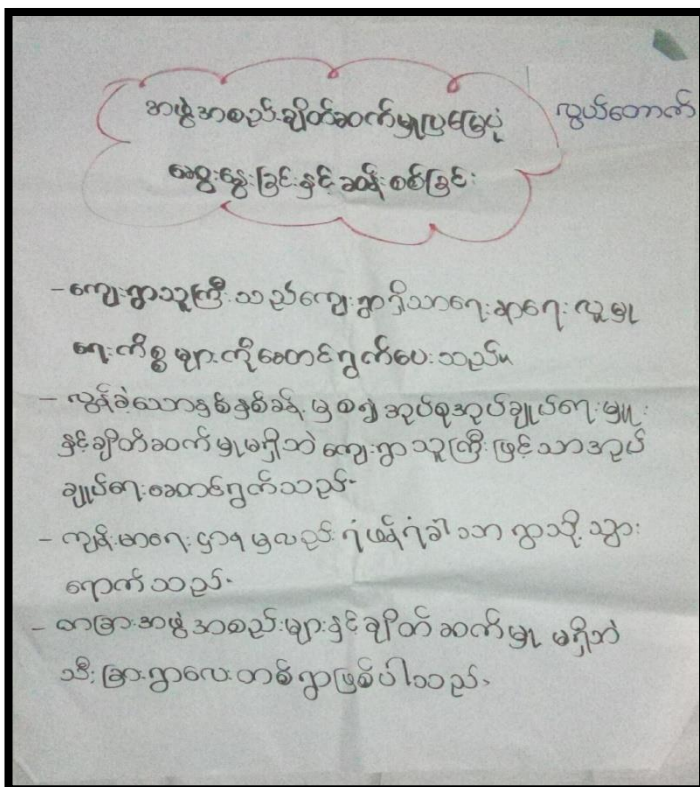 အဖွဲ့အစည်းချိတ်ဆက်မှုပြမြေပုံ
လွယ်တောက်
ဆွေးနွေးခြင်းနှင့်ဆန်းစစ်ခြင်း
-ကျေးရွာသူကြီးသည်ကျေးရွာရှိသာရေးနာရေးလူမှု
ရေးကိစ္စများကိုဆောင်ရွက်ပေးသည်။
- လွန်ခဲ့သောနှစ်နှစ်ခန့်မှစ၍အုပ်စုအုပ်ချုပ်ရေးမှူး
နှင့်ချိတ်ဆက်မှုမရှိဘဲကျေးရွာသူကြီးဖြင့်သာအုပ်
ချုပ်ရေးဆောင်ရွက်သည်။
- ကျန်းမာရေးဌာနမှလည်းရံဖန်ရံခါသာရွာသို့သွား
ရောက်သည်။
- တခြားအဖွဲ့အစည်းများနှင့်ချိတ်ဆက်မှု မရှိဘဲ
သီးခြားရွာလေးတစ်ရွာဖြစ်ပါသည်။